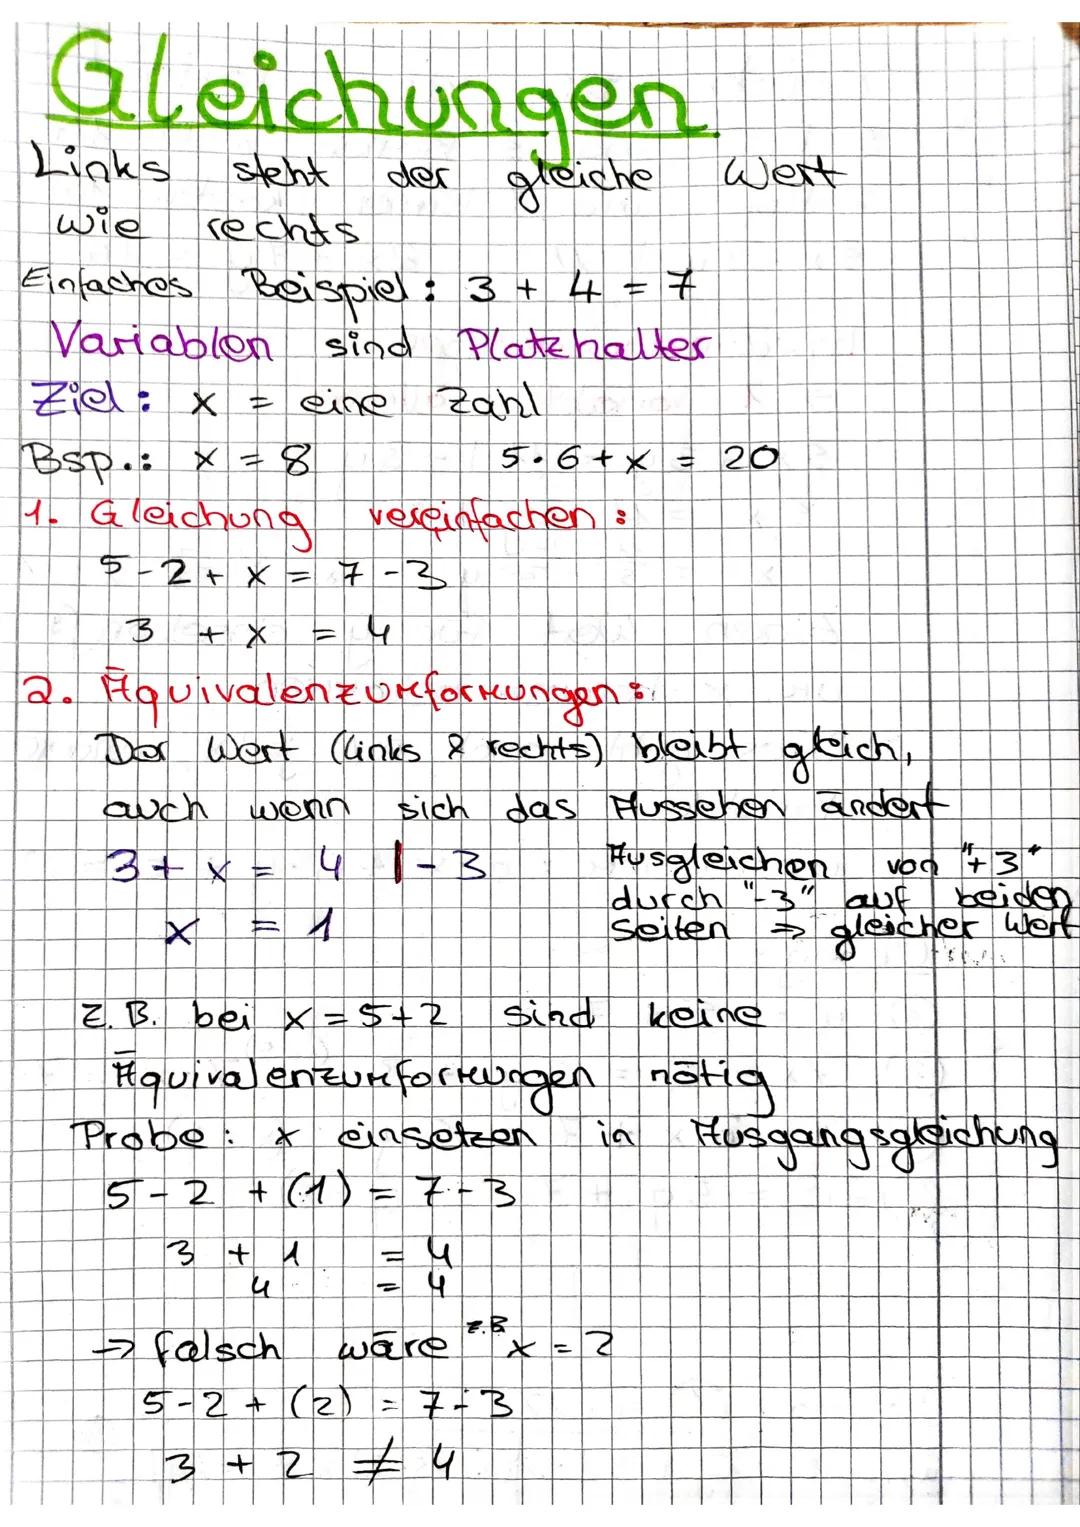 Gleichungen
Links steht der gleiche Wert
wie rechts
Einfaches Beispiel: 3 + 4 = 7
Variablen sind Platzhalter
Ziel: x = eine Zahl
Bsp.: x = 8 5·6+x = 20
1. Gleichung vereinfachen:
5-2+ x = 7-3
3 + x = 4
2. Äquivalenzumformungen:
Der Wert (links & rechts) bleibt gleich,
auch wenn sich das Aussehen ändert
3+ x = 4 |-3
x = 1
Ausgleichen von "+3"
durch "-3" auf beiden
Seiten ⇒ gleicher Wert
z. B. bei x = 5+2 sind keine
Äquivalenzumformungen nötig
Probe: x einsetzen in Ausgangsgleichung
5-2 +(1) = 7-3
3 + 1 = 4
4 = 4
→ falsch wäre z.B. x = 2
5-2+ (2) = 7-3
3 + 2 ≠ 4